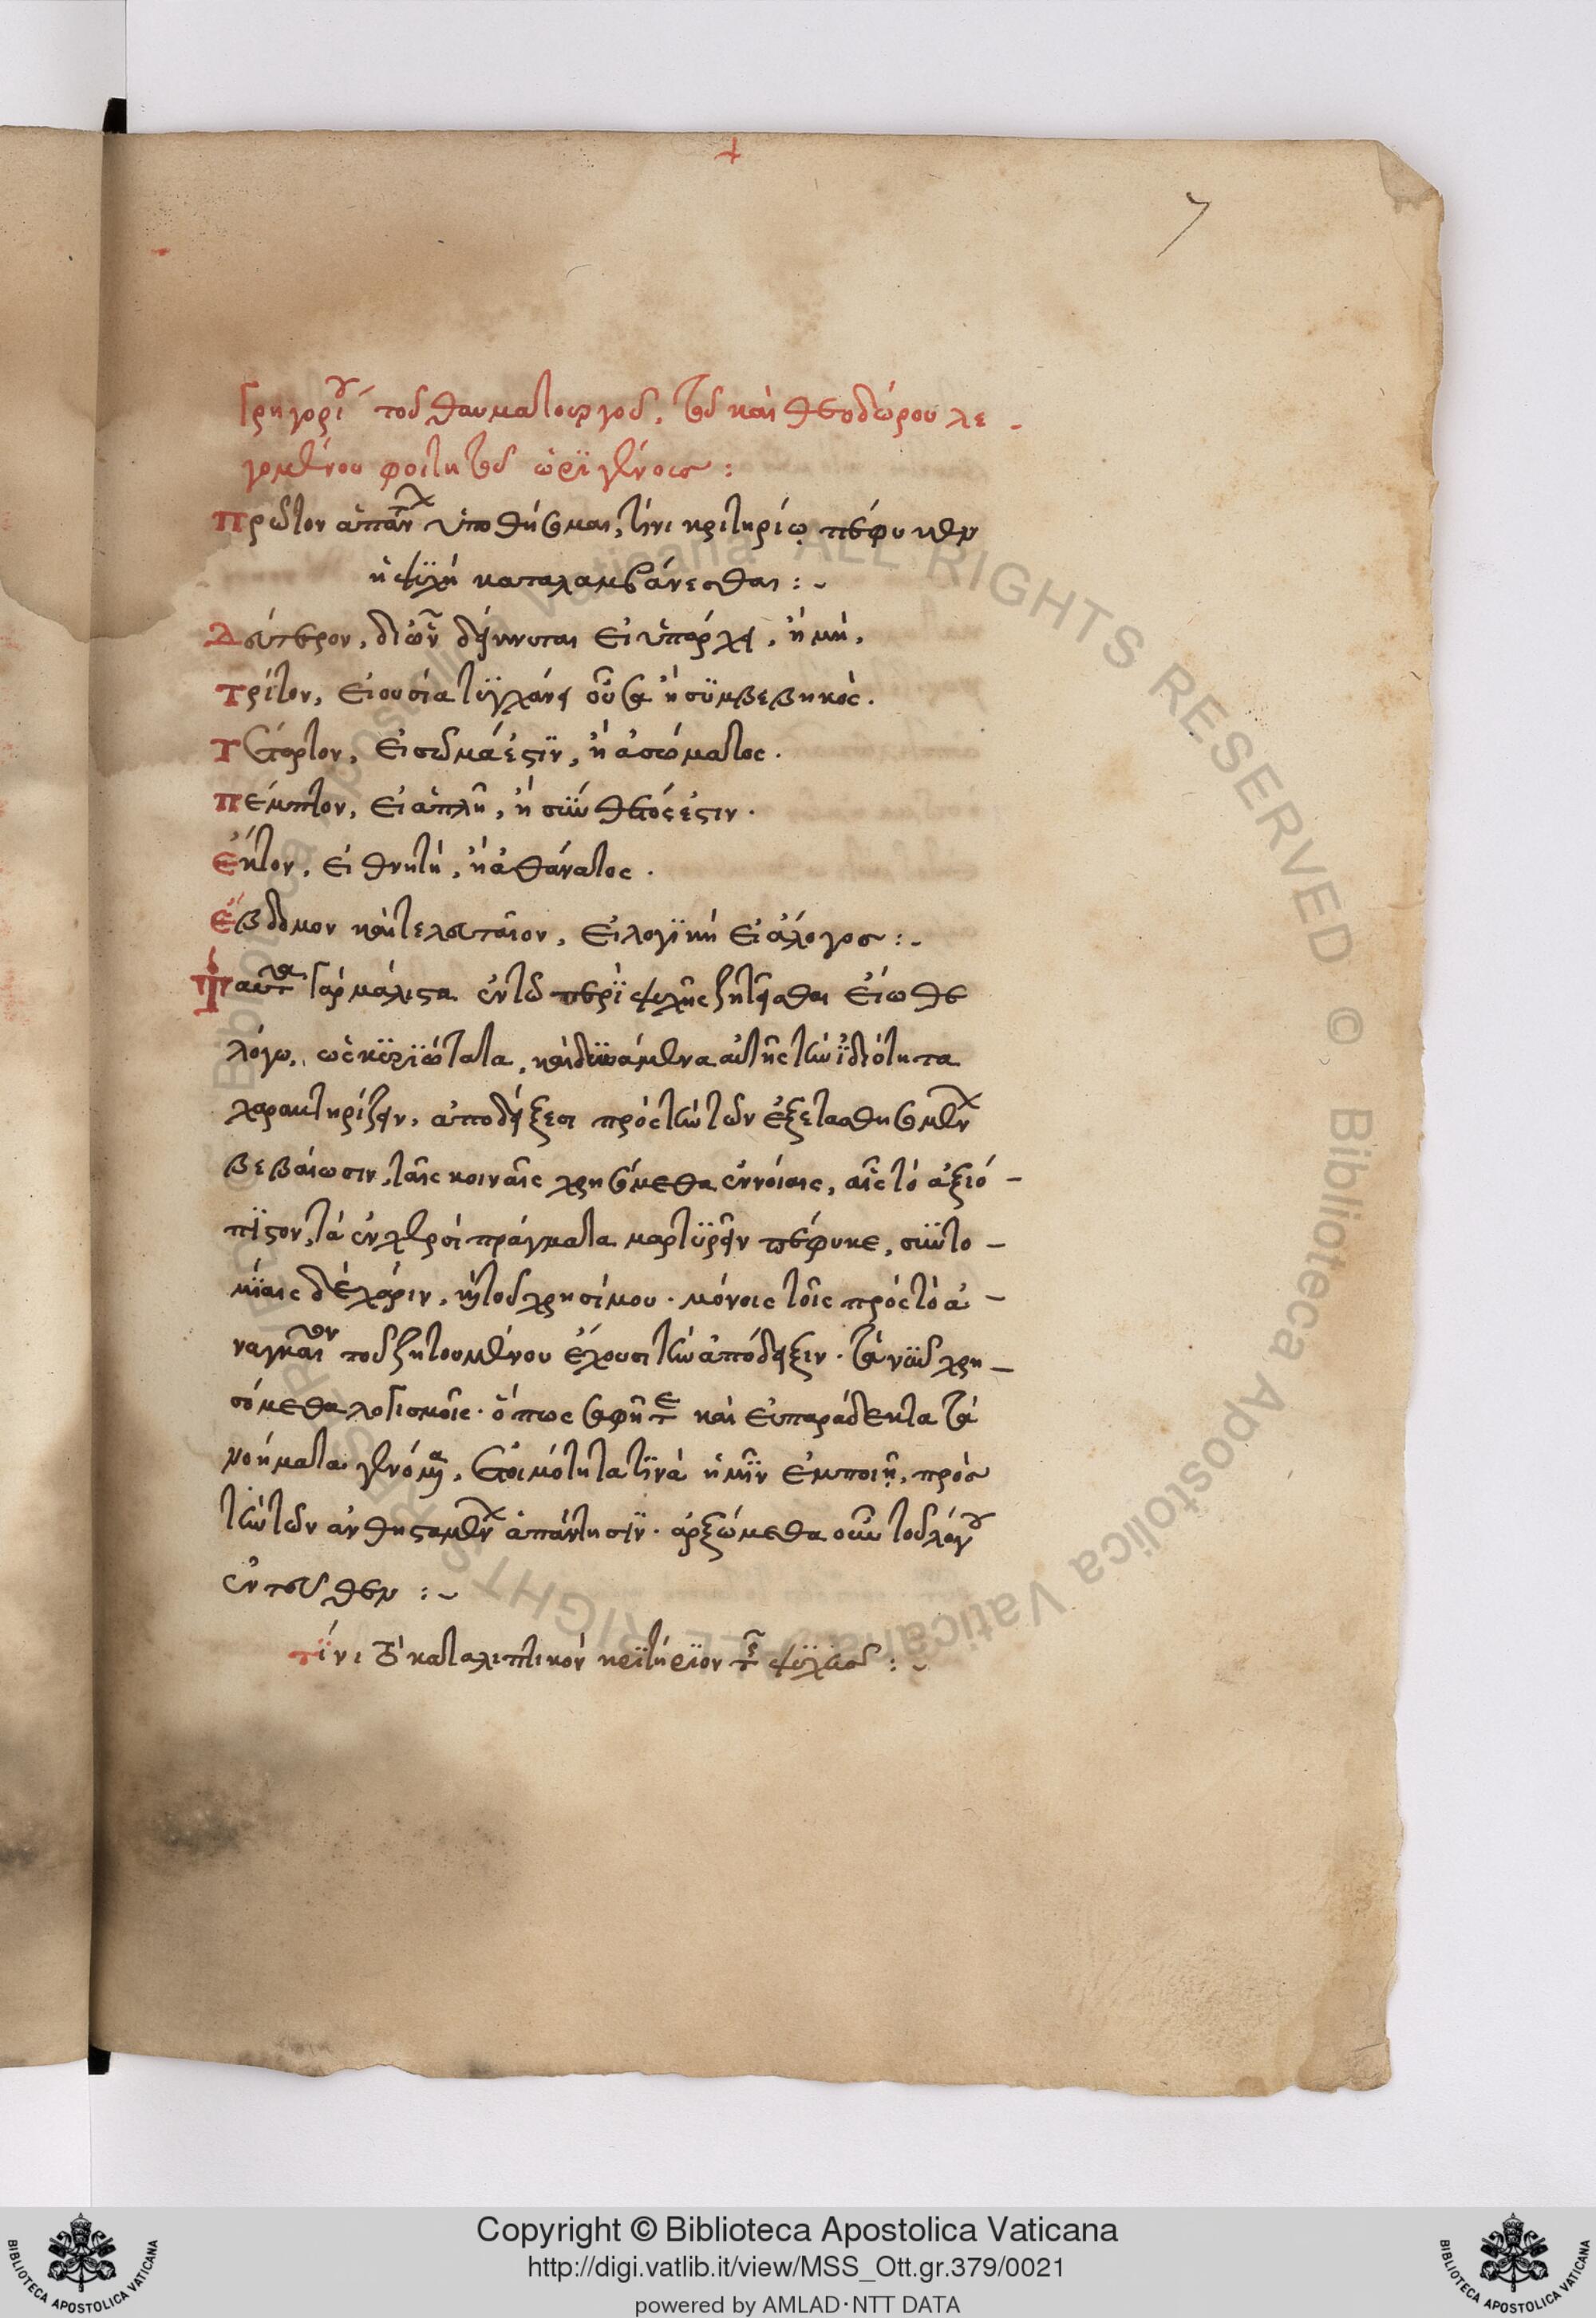 +
7
Γρηγορίου τοῦ θαυματουργοῦ, τοῦ καὶ θεοδώρου λε-
γομένου φοιτητοῦ ὠριγένους:
Πρῶτον ἁπάντων ὑποθήσομαι, τίνι κριτηρίω πέφυκεν
ἡ ψϋχή καταλαμβάνεσθαι:~
Δεύτερον, διὧν δείκνυται εἰ ὑπάρχει, ἢ μή,
Τρίτον, εἰ ουσία τϋγχάνει οὖσα ἢ σϋμβεβηκός.
Τέταρτον, εἰ σῶμά ἐστϊν, ἢ ἀσώματος.
Πέμπτον, εἰ ἁπλῆ, ἢ σϋνθετός ἐστιν.
Ἕκτον, εἰ θνητή, ἢ ἀθάνατος.
Ἕβδομον καὶ τελευταῖον, εἰ λογϊκή εἰ ἄλογος:~
Ταῦτα γὰρ μάλιστα ἐν τῶ περϊ ψυχῆς ζητεῖσθαι εἴωθε
λόγω, ὡς κϋρϊώτατα, καὶ δϋνάμενα αὐτῆς τὴν ϊδιότητα
χαρακτηρίζειν, ἀποδείξεσι πρὸς τὴν τῶν ἐξετασθησομένων
βεβαίωσιν, ταῖς κοιναῖς χρησόμεθα ἐννοίαις, αἷς τὸ ἀξιό-
πϊστον, τὰ ἐν χερσὶ πράγματα μαρτϋρεῖν πέφυκε, σϋντο-
μίαις δὲ χάριν, καὶ τοῦ χρησίμου. μόνοις τοῖς πρὸς τὸ ἀ-
ναγκαῖον τοῦ ζητουμένου ἔχουσι τὴν ἀπόδειξιν. τὰ νῦν χρη-
σόμεθα λογισμοῖς. ὅπως σαφῆ τε καὶ εὐπαράδεκτα τὰ
νοήματα γενόμενα, ἑτοιμότητα τϊνὰ ἡμῖν ἐμποιῆ, πρὸς
τὴν τῶν ἀνθισταμένων ἀπάντησϊν. ἀρξώμεθα οὖν τοῦ λόγου
ἐντεῦθεν:~
τίνι τὸ καταλιπτικὸν κρϊτήρϊον τῆς ψϋχῆς:~
Copyright © Biblioteca Apostolica Vaticana
http://digi.vatlib.it/view/MSS_Ott.gr.379/0021
powered by AMLAD·NTT DATA
BIBLIOTECA APOSTOLICA VATICANA
BIBLIOTECA APOSTOLICA VATICANA